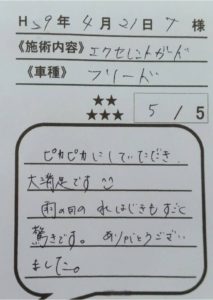 H29年4月21日 T 様
《施術内容》エクセレントガード
《車種》フリード
★★
★★★
5 / 5
ピカピカにしていただき
大満足です
雨の日の水はじきもすごく
驚きです。ありがとうござい
ました。